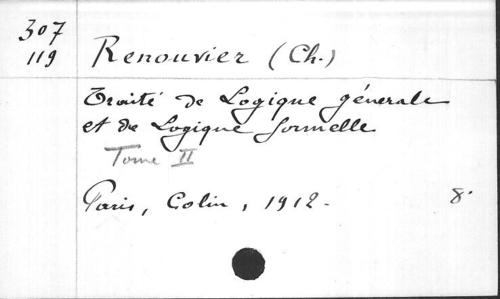 307
119
Renouvier (Ch.)
Traité de Logique générale
et de Logique formelle
Tome II
Paris, Colin, 1912.
8°